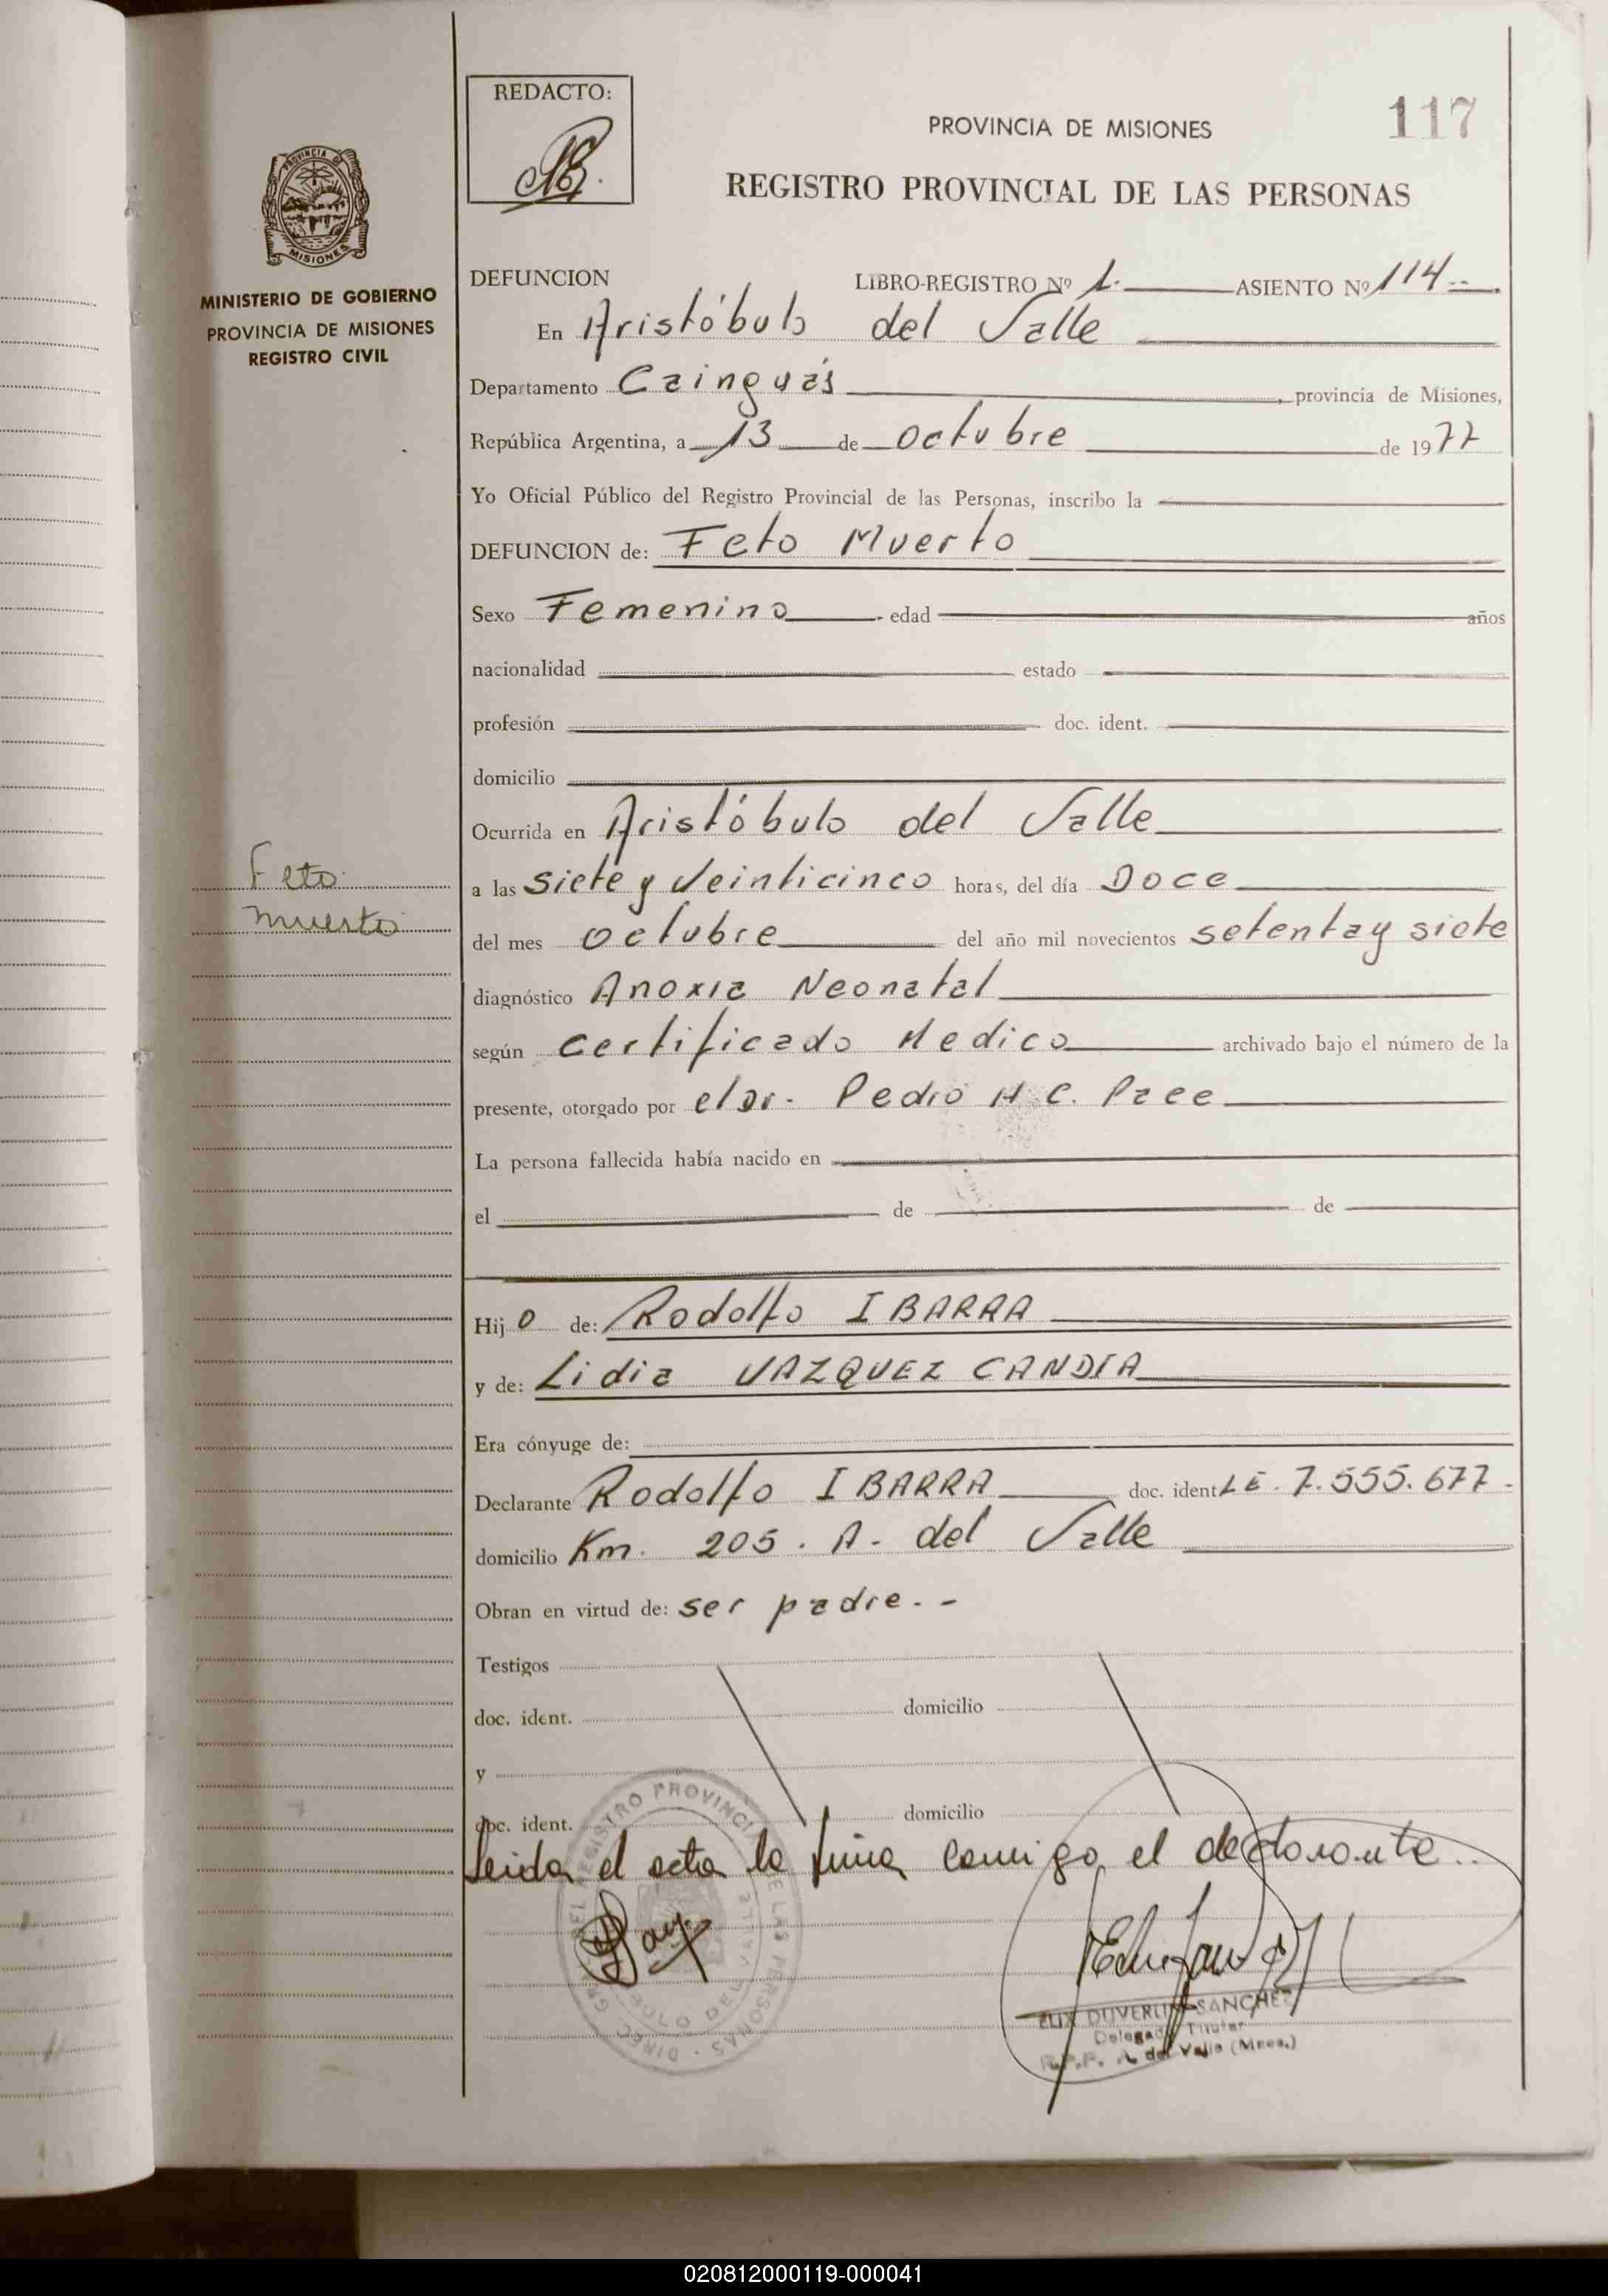 REDACTO:
117
PROVINCIA DE MISIONES
REGISTRO PROVINCIAL DE LAS PERSONAS
PROVINCIA DE
MISIONES
MINISTERIO DE GOBIERNO
PROVINCIA DE MISIONES
REGISTRO CIVIL
DEFUNCION LIBRO-REGISTRO Nº 1. ASIENTO Nº 114
En Aristóbulo del Valle
Departamento Cainguás, provincia de Misiones,
República Argentina, a 13 de octubre de 1977
Yo Oficial Público del Registro Provincial de las Personas, inscribo la
DEFUNCION de: Feto Muerto
Sexo Femenino edad años
nacionalidad estado
profesión doc. ident.
domicilio
Ocurrida en Aristóbulo del Valle
Feto
muerto
a las siete y Veinticinco horas, del día Doce
del mes octubre del año mil novecientos setenta y siete
diagnóstico Anoxia Neonatal
según certificado Medico archivado bajo el número de la
presente, otorgado por el Dr. Pedro H. C. Pace
La persona fallecida había nacido en
el de de
Hij o de: Rodolfo IBARRA
y de: Lidia VAZQUEZ CANDIA
Era cónyuge de:
Declarante Rodolfo IBARRA doc. ident LE. 7.555.677.
domicilio Km. 205. A. del Valle
Obran en virtud de: ser padre. -
Testigos
doc. ident. domicilio
y
doc. ident. domicilio
Leida el acta la firma comigo el declarante..
ELIX DUVERLI SANCHEZ
Delegado Titular
R.P.P. A. del Valle (Mnes.)
020812000119-000041